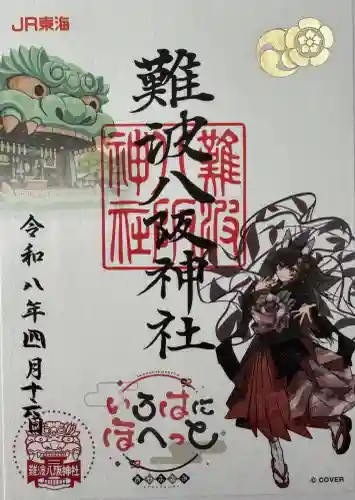 JR東海
難波八阪神社
難波八阪神社
令和八年四月十六日
いろはに
ほへっと
難波八阪神社
© COVER